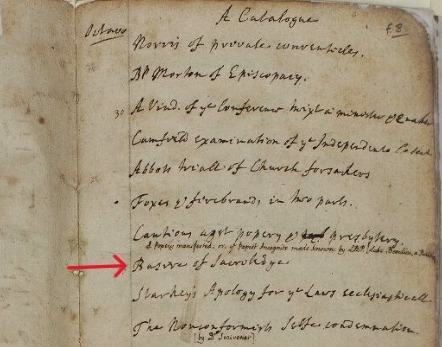 A Catalogue
Octavo
Norris of private conventicles.
Bp Morton of Episcopacy.
30 A Vind. of ye Conference mixt a minister & Quaker
Camfeild examination of ye Independents
Abbots triall of Church forsakers
Foxes & firebrands in two parts.
Cautions agst popery & presbytery.
of papist Incognito made known by
Basire of Sacriledge
Starkeys Apology for ye Laws ecclesiasticall
The Nonconformists selfe condemnation
[by Dr Scrivener]